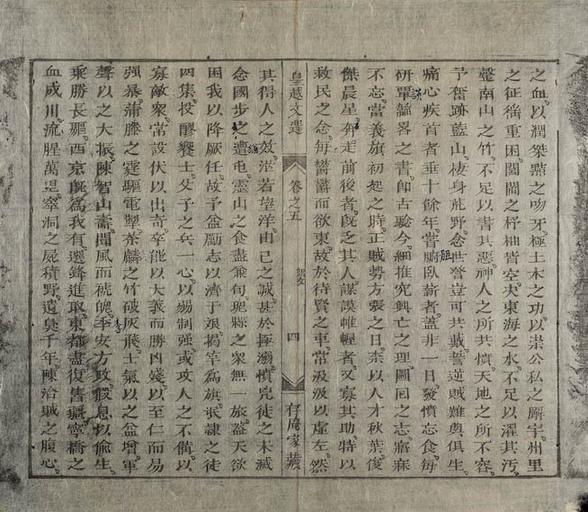 之血以潤桀黠之吻牙極土木之功以崇公私之廨宇州里
之征徭重困閭閻之杼柚皆空決東海之水不足以濯其污
罄南山之竹不足以書其惡神人之所共憤天地之所不容
予奮跡藍山棲身荒野念世讐豈可共戴誓逆賊難與俱生
痛心疾首者垂十餘年嘗膽臥薪者蓋非一日發憤忘食每
研覃韜畧之書卽古驗今細推究興亡之理圖回之志寤寐
不忘當義旗初起之時正賊勢方張之日奈以人才秋葉俊
傑晨星奔走前後者旣乏其人謀謨帷幄者又寡其助特以
救民之念每欝欝而欲東故於待賢之車常汲汲以虛左然
皇越文選 卷之五 四 存庵家藏
其得人之效茫若望洋由己之誠甚於拯溺憤兇徒之未滅
念國步之遭屯靈山之食盡兼旬瑰縣之衆無一旅蓋天欲
困我以降厥任故予益勵志以濟于艱揭竿爲旗氓隷之徒
四集投醪饗士父子之兵一心以弱制强或攻人之不備以
寡敵衆常設伏以出奇卒能以大義而勝凶殘以至仁而易
强暴蒲藤之霆驅電掣茶麟之竹破灰飛士氣以之益增軍
聲以之大振陳智山壽聞風而褫魄李安方政假息以偷生
乘勝長驅西京旣爲我有選鋒進取東都盡復舊疆寧橋之
血成川流腥萬里窣洞之屍積野遺臭千年陳洽賊之腹心